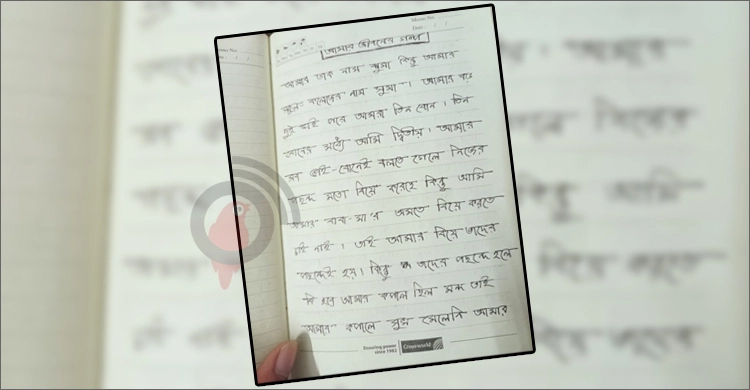 আমার জীবনের গল্প
আমার ডাক নাম ঝুমা কিন্তু আমার
স্কুল কলেজের নাম সুমা। আমার বড়
দুই ভাই পরে আমরা তিন বোন। তিন
বোনের মধ্যে আমি দ্বিতীয়। আমার
সব ভাই-বোনেই বলতে গেলে নিজের
পছন্দ মতো বিয়ে করেছে কিন্তু আমি
আমার বাবা-মা'র অমতে বিয়ে করতে
চাই নাই। তাই আমার বিয়ে তাদের
পছন্দেই হয়। কিন্তু তাদের পছন্দে হলে
কি হবে আমার কপাল ছিল মন্দ তাই
আমার কপালে সুখ মেলেনি আমার
Ensuring power
since 1982